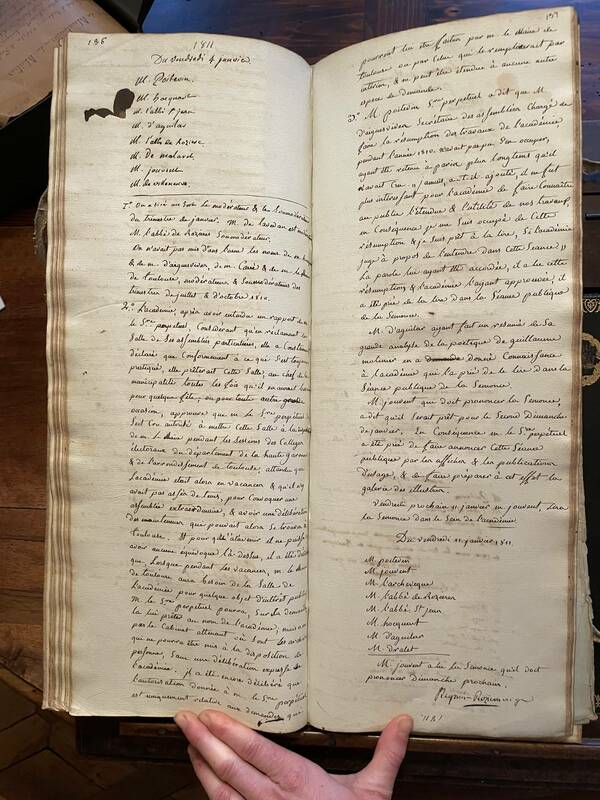 136
1811
Du vendredi 4 janvier
M. Poitevin
M. hocquart
M. l'abbé St jean
M. d'aguilar
M. l'abbé de Rozieres
M. de
M. jouvent
M. de villeneuve
1.° On a tiré au Sort le modérateur & le Sousmodérateur
du trimestre de janvier. M. de lavedan est modérateur
M. l'abbé de Rozieres Sousmodérateur.
On n'avait pas mis dans l'urne les noms de m.
& de m. d'arguesvives, de m. Carré & de m. le
de toulouse, modérateurs & Sousmodérateurs des
trimestres de juillet & d'octobre 1810.
2.° L'académie, après avoir entendu un rapport de m.
le Sre perpétuel, Considérant qu'en réclamant la
Salle de Ses assemblées particulières, elle a Constamment
déclaré que Conformément à ce qui S'est toujours
pratiqué, elle prêterait Cette Salle, au chef de la
municipalité toutes les fois qu'il en aurait besoin
pour quelque fête, ou pour toute autre grande
occasion, approuve que m. le Sre perpétuel
Se soit Cru autorisé à mettre Cette Salle à la disposition
de m. le Maire pendant les Sessions des Collèges
électoraux du département de la haute garonne
& de l'arrondissement de toulouse, attendu que
l'académie était alors en vacances & qu'il n'y
avait pas assès de tems, pour Convoquer une
assemblée extraordinaire, & avoir une délibération
des mainteneurs qui pouvait alors Se trouver à
toulouse. Et pour qu'à l'avenir il ne puisse y
avoir aucune équivoque là dessus, il a été délibéré
que, Lorsque pendant les vacances, m. le Maire
de toulouse aura besoin de la Salle de
l'académie pour quelque objet d'intérêt public
M. le Sre perpétuel pourra, Sur Sa demande
la lui prêter au nom de l'académie; mais non
pas le Cabinet attenant où Sont les archives
qui ne pourra être mis à la disposition de
personne, Sans une délibération expresse de
l'académie. Il a été encore délibéré que
l'autorisation donnée à m. le Sre perpétuel
est uniquement relative aux demandes qui
137
pourront lui être faites par m. le Maire de
toulouse ou par Celui qui le remplacerait par
interim, & ne peut être étendue à aucune autre
espece de demande.
3.° M. Poitevin Sre perpétuel a dit que M.
d'arguesvives Secrétaire des assemblées Chargé de
faire la résomption des travaux de l'académie
pendant l'année 1810. n'avait pas pu S'en occuper,
ayant été retenu à paris plus longtems qu'il
n'avait Cru. "J'aurais, a-t-il ajouté, il me parut
plus intéressant pour l'académie de faire Connaître
au public l'étendue & l'utilité de nos travaux,
en Conséquence je me Suis occupé de Cette
résumption & je Suis prêt à la lire, Si l'académie
juge à propos de l'entendre dans Cette Séance"
La parole lui ayant été accordée, il a lu cette
résumption & l'académie l'ayant approuvée, il
a été prié de la lire dans la Séance publique
de la Semonce.
M. d'aguilar ayant fait un résumé de Sa
grande analyse de la poétique de guillaume
molinier en a donné Connaissance
à l'académie qui l'a prié de le lire dans la
Séance publique de la Semonce.
M. jouvent qui doit prononcer la Semonce,
a dit qu'il Serait prêt pour le Second Dimanche
de janvier. En Conséquence m. le Sre perpétuel
a été prié de faire annoncer Cette Séance
publique par les affiches & les publications
d'usage, & de faire préparer à cet effet la
galerie des illustres.
Vendredi prochain 11 janvier m. jouvent, Lira
la Semonce dans le Sein de l'académie.
Du vendredi 11 janvier 1811.
M. poitevin
M. jouvent
M. l'archevêque
M. l'abbé de Rozieres
M. l'abbé St jean
M. hocquart
M. d'aguilar
M. dralet
M. jouvent a lu la Semonce qu'il doit
prononcer Dimanche prochain.